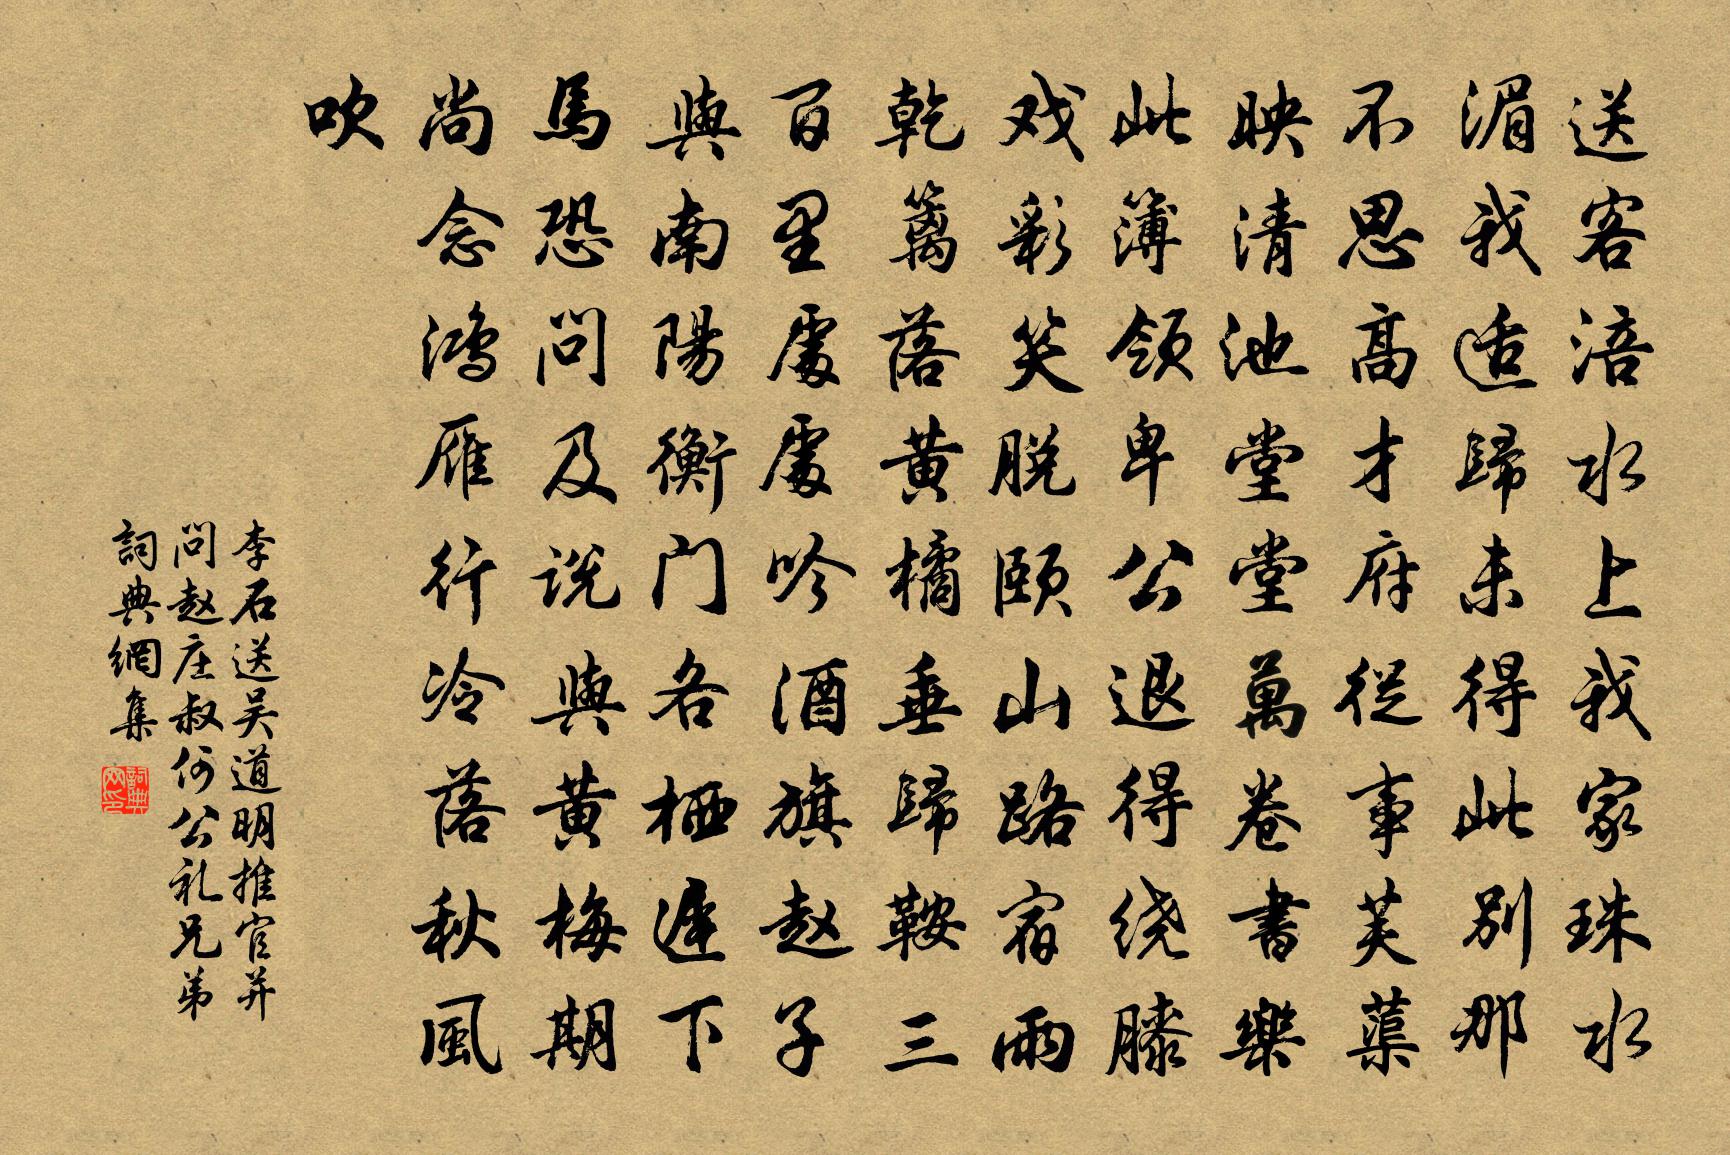 送客涪水上我家珠水
湄我适歸未得此别那
不思高才府從事芙蕖
映清池堂堂萬卷書樂
此簿領卑公退得绕膝
戏彩笑脱颐山路宿雨
乾篱落黄橘垂歸鞍三
百里處處吟酒旗赵子
與南陽衡门各栖遲下
馬恐問及说與黄梅期
尚念鸿雁行冷落秋風
吹
李石送吴道明推官并
問赵庄叔何公礼兄弟
詞典網集
詞典网印